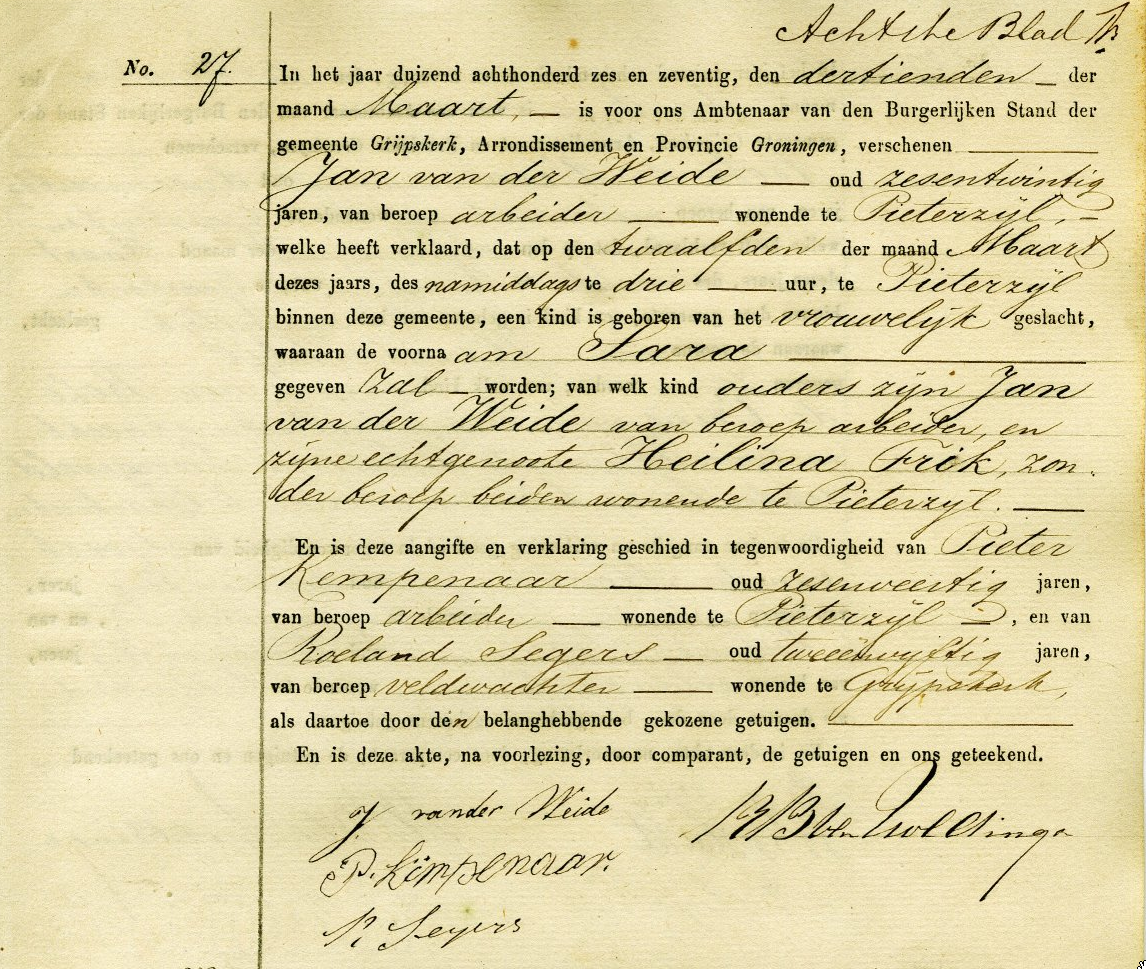 Achtste Blad
No. 27.
In het jaar duizend achthonderd zes en zeventig, den dertienden — der
maand Maart, — is voor ons Ambtenaar van den Burgerlijken Stand der
gemeente Grijpskerk, Arrondissement en Provincie Groningen, verschenen
Jan van der Weide — oud zesentwintig
jaren, van beroep arbeider — wonende te Pieterzijl, —
welke heeft verklaard, dat op den twaalfden der maand Maart
dezes jaars, des namiddags te drie — uur, te Pieterzijl
binnen deze gemeente, een kind is geboren van het vrouwelijk geslacht,
waaraan de voornaam Sara
gegeven zal — worden; van welk kind ouders zijn Jan
van der Weide van beroep arbeider, en
zijne echtgenoote Heilina Frik, zon-
der beroep beiden wonende te Pieterzijl. —
En is deze aangifte en verklaring geschied in tegenwoordigheid van Pieter
Kempenaar — oud zesenveertig jaren,
van beroep arbeider — wonende te Pieterzijl —, en van
Roeland Segers — oud tweeënvijftig jaren,
van beroep veldwachter — wonende te Grijpskerk,
als daartoe door den belanghebbende gekozene getuigen. —
En is deze akte, na voorlezing, door comparant, de getuigen en ons geteekend.
J van der Weide
P. Kempenaar.
R Segers